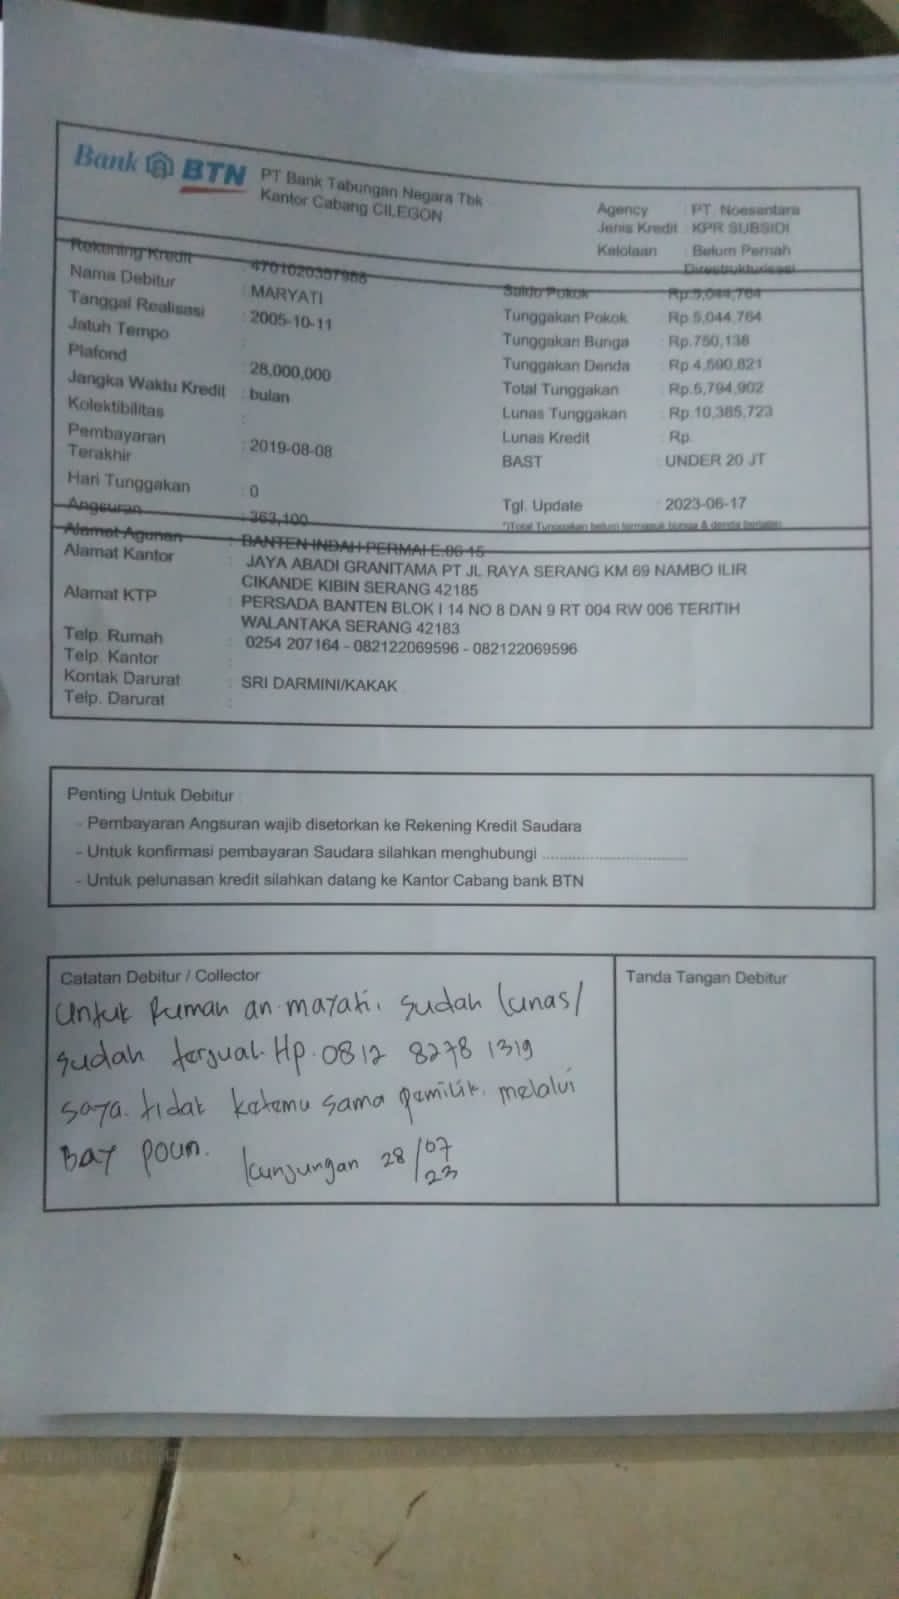 Bank BTN PT Bank Tabungan Negara Tbk
Kantor Cabang CILEGON
Agency : PT. Noesantara
Jenis Kredit : KPR SUBSIDI
Kelolaan : Belum Pernah
Direstrukturisasi
Rekening Kredit
Nama Debitur : MARYATI
Tanggal Realisasi : 2005-10-11
Jatuh Tempo :
Plafond : 28,000,000
Jangka Waktu Kredit : bulan
Kolektibilitas :
Pembayaran
Terakhir : 2019-08-08
Hari Tunggakan : 0
Angsuran : 363,100
Saldo Pokok : Rp.5,044,764
Tunggakan Pokok : Rp.5,044,764
Tunggakan Bunga : Rp.750,138
Tunggakan Denda : Rp.4,590,821
Total Tunggakan : Rp.5,794,902
Lunas Tunggakan : Rp.10,385,723
Lunas Kredit : Rp.
BAST : UNDER 20 JT
Tgl. Update : 2023-06-17
*)Total Tunggakan belum termasuk bunga & denda berjalan
Alamat Agunan : BANTEN INDAH PERMAI E.06 15
Alamat Kantor : JAYA ABADI GRANITAMA PT JL RAYA SERANG KM 69 NAMBO ILIR
CIKANDE KIBIN SERANG 42185
Alamat KTP : PERSADA BANTEN BLOK I 14 NO 8 DAN 9 RT 004 RW 006 TERITIH
WALANTAKA SERANG 42183
Telp. Rumah : 0254 207164 - 082122069596 - 082122069596
Telp. Kantor :
Kontak Darurat : SRI DARMINI/KAKAK
Telp. Darurat :
Penting Untuk Debitur
- Pembayaran Angsuran wajib disetorkan ke Rekening Kredit Saudara
- Untuk konfirmasi pembayaran Saudara silahkan menghubungi ..............................
- Untuk pelunasan kredit silahkan datang ke Kantor Cabang bank BTN
Catatan Debitur / Collector
Untuk Rumah an. mayati. sudah lunas/
sudah terjual. Hp. 0812 8278 1319
saya. tidak ketemu sama pemilik. melalui
BAY POUN.
kunjungan 28/07/23
Tanda Tangan Debitur